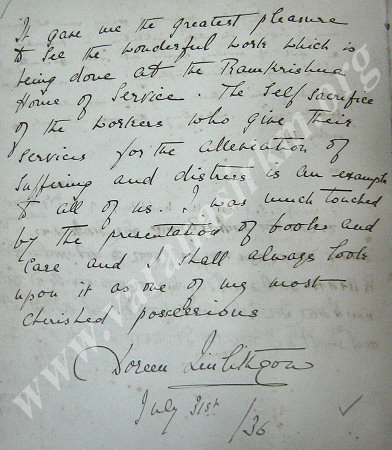 It gave me the greatest pleasure
to see the wonderful work which is
being done at the Ramkrishna
Home of Service. The Self Sacrifice
of the workers who give their
services for the alleviation of
suffering and distress is an example
to all of us. I was much touched
by the presentation of books and
case and I shall always look
upon it as one of my most
cherished possessions
Doreen Linlithgow
July 31st
/36